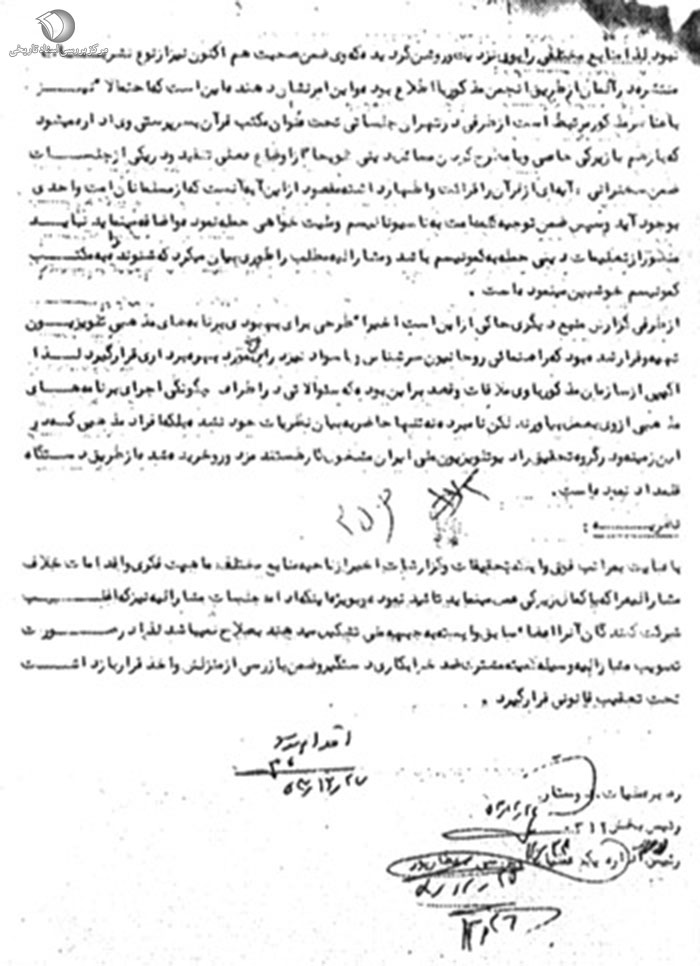 مرکز بررسی اسناد تاریخی
نبود لذا منابع مختلفی را بوی نزدیک و روشن گردید که وی ضمن صحبت هم اکنون نیز از نوع نشریه
منتشره در آلمان از طریق انجمن مذکور با اطلاع بوده و این امر نشان دهنده این است که احتمالا نیز
با عناصر مذکور مرتبط است از طرفی در تهران جلساتی تحت عنوان مکتب قرآن بسرپرستی وی اداره میشود
که بارهم با زیرکی خاصی و با مطرح کردن مسائل دینی تلویحا از اوضاع فعلی تنقید و در یکی از جلسات
ضمن سخنرانی آیه‌ای از قرآن را قرائت و اظهار داشته مقصود از این آیه آنست که از مسلمانان امت واحدی
بوجود آید و سپس ضمن توجیه کلمه امت به ناسیونالیسم و ملیت خواهی حمله نموده و اضافه مینماید نباید
منظور از تعلیمات دینی حمله به کمونیسم باشد و مشارالیه مطلب را طوری بیان میکرد که شنونده را به مکتب
کمونیسم خوشبین مینموده است .
از طرفی گزارش منبع دیگری حاکی از این است اخیرا طرحی برای بهبودی برنامه‌های مذهبی تلویزیون
تهیه و قرار شده بود که راهنمائی روحانیون سرشناس و با سواد نیز در این مورد بهره برداری قرار گیرد لذا
اکیپی از سازمان مذکور با وی ملاقات و قصد بر این بود که سئوالاتی در اطراف چگونگی اجرای برنامه‌های
مذهبی از وی بعمل بیاورند لکن نامبرده نه تنها حاضر به بیان نظریات خود نشده بلکه افراد مذهبی که در
این زمینه در گروه تحقیق رادیو تلویزیون ملی ایران مشغول کار هستند مزدور و خرید شده از طریق دستگاه
قلمداد نموده است .
نظریه :
با عنایت بمراتب فوق و اینکه تحقیقات و گزارشات اخیر از ناحیه منابع مختلف ماهیت فکری و اقدامات خلاف
مشارالیه را که با کمال زیرکی عمل مینماید تائید نموده و بویژه اینکه ادامه جلسات مشارالیه نیز که اغلب
شرکت کنندگان آنرا اعضاء سابق وابسته به جبهه ملی تشکیل میدهند بصلاح نمیباشد لذا در صورت
تصویب مشارالیه وسیله کمیته مشترک ضد خرابکاری دستگیر و ضمن بازرسی از منزلش و اخذ قرار بازداشت
تحت تعقیب قانونی قرار گیرد .
اقدام شد
رهبر عملیات . دوستار
رئیس بخش ۳۱۲
رئیس اداره یکم عملیات